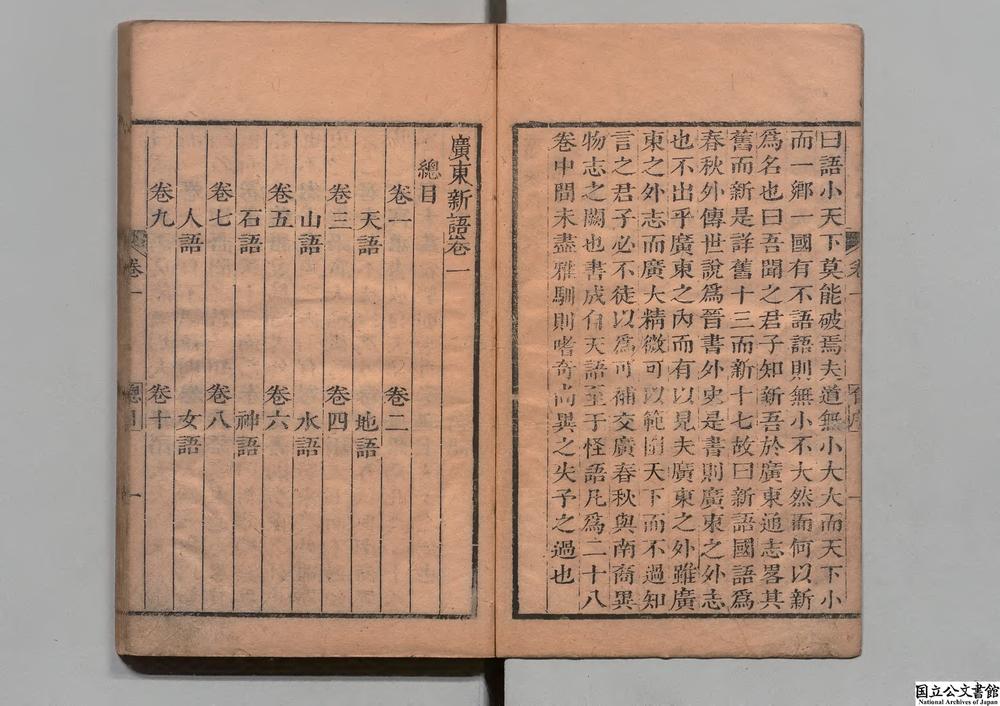 曰語小天下莫能破焉夫道無小大大而天下小
而一鄉一國有不語語則無小不大然而何以新
為名也曰吾聞之君子知新吾於廣東通志畧其
舊而新是詳舊十三而新十七故曰新語國語為
春秋外傳世說為晉書外史是書則廣東之外志
也不出乎廣東之內而有以見夫廣東之外雖廣
東之外志而廣大精微可以範圍天下而不過知
言之君子必不徒以為可補交廣春秋與南裔異
物志之闕也書成自天語至于怪語凡為二十八
卷中間未盡雅馴則嗜奇尚異之失予之過也
卷一
自序
一
廣東新語卷一
總目
卷一 卷二
天語 地語
卷三 卷四
山語 水語
卷五 卷六
石語 神語
卷七 卷八
人語 女語
卷九 卷十
卷一
總目
一
国立公文書館
National Archives of Japan